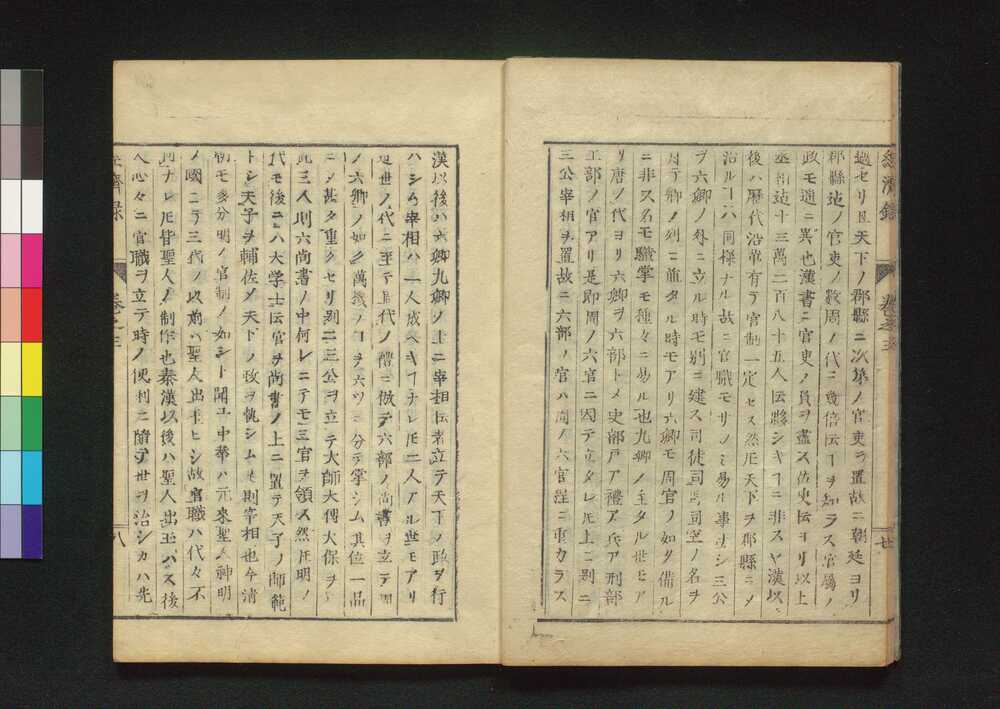 過セリ且天下ノ郡縣ニ次第ノ官吏ヲ置故ニ朝廷ヨリ
郡縣迄ノ官吏ノ數周ノ代ニ幾倍云コヲ知ラス官屬ノ
政モ適ニ異也漢書ニ官吏ノ員ヲ盡ス佐史ヨリ以上
丞相迄十三萬二百八十五人ト云夥シキコニ非スヤ漢以
後ハ歴代沿革有テ官制一定セス然レ𪜈天下ヲ郡縣ニメ
治ルコハ同樣ナル故ニ官職モサノミ易ル事ナシ三公
ヲ六卿ノ外ニ立ル時モ別ニ建ス司徒司馬司空ノ名ヲ
用テ卿ノ列ニ並タル時モアリ六卿モ周官ノ如ク備ル
ニ非ス名モ職掌モ種々ニ易ル也九卿ノ全タル世モア
リ唐ノ代ヨリ六卿ヲ六部トメ吏部戸部禮部兵部刑部
工部ノ官アリ是即周ノ六官ニ因テ立タレ𪜈上ニ別ニ
三公宰相ヲ置故ニ六部ノ官ハ周ノ六官程ニ重カラス
經濟録 卷之三 七
漢以後ハ六卿九卿ノ上ニ宰相ト云者立テ天下ノ政ヲ行
ハシム宰相ハ一人成ヘキコナレ𪜈二人アル世モアリ
近世ノ代ニ至テ上代ノ禮ニ倣テ六部ノ尚書ヲ立テ周
ノ六卿ノ如ク萬機ノコヲ六ツニ分テ掌シム其位一品
ニメ甚タ重クセリ別ニ三公ヲ立テ大師大傅大保ヲ
此三人則六尚書ノ中何レニテモ三官ヲ領ス然𪜈明ノ
代モ後ニハ大学士ト云官ヲ尚書ノ上ニ置テ天子ノ師範
トシ天子ヲ輔佐メ天下ノ政ヲ執シムモ則宰相也今清
朝モ多分明ノ官制ノ如シト聞ユ中華ハ元來聖人神明
ノ國ニテ三代ノ以前ハ聖人出玉ヒシ故官職ハ代々不
同ナレ𪜈皆聖人ノ制作也秦漢以後ハ聖人出玉ハス後
人心々ニ官職ヲ立テ時ノ便利ニ隨テ世ヲ治シカハ先
經濟録 卷之三 八